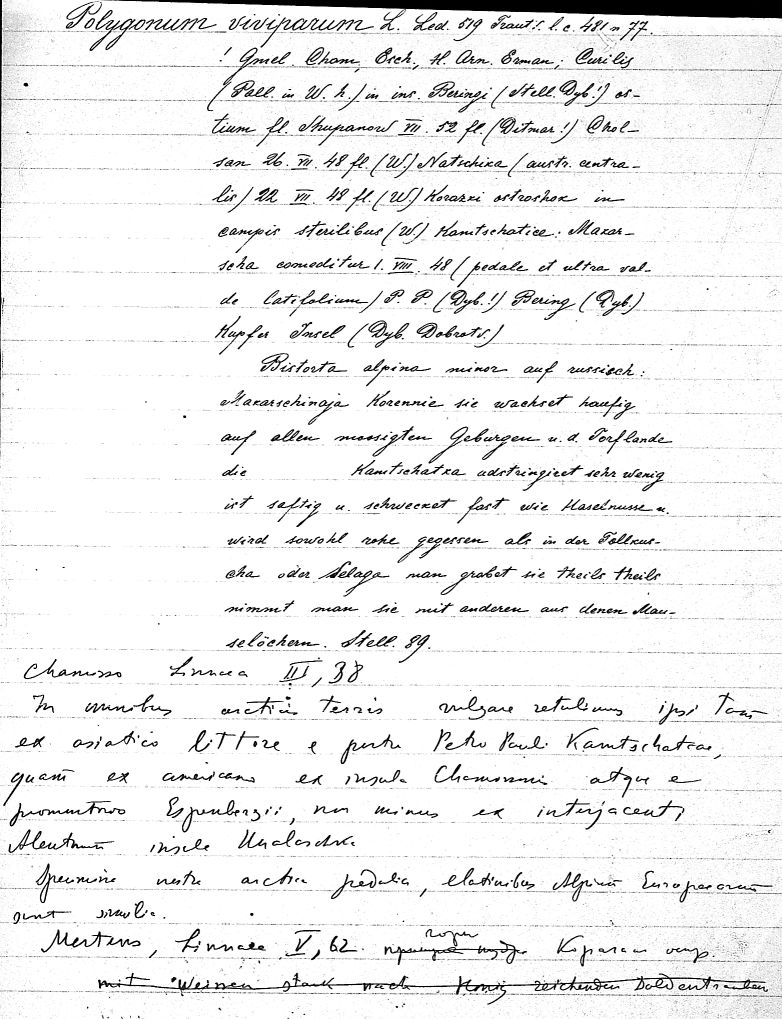 Polygonum viviparum L. Led. 519 Trautv. l. c. 481 n 77.
! Gmel. Cham, Esch, H. Arn. Erman; Curilis
(Pall. in W. h.) in ins. Beringi (Stell. Dyb!) os-
tium fl. Shupanow VII. 52 fl. (Ditmar!) Chol-
san 26. VII. 48 fl. (W) Natschika (austr. centra-
lis) 22 VII. 48 fl. (W) Korazki ostroshok in
campis sterilibus (W) Kamtschatice: Makar-
scha comeditur 1. VIII. 48 (pedale et ultra val-
de latifolium) P. P. (Dyb.!) Bering (Dyb)
Kupfer Insel (Dyb. Dobrots.)
Bistorta alpina minor auf russisch:
Makarschinaja Korennie sie wachset haufig
auf allen moosigten Geburgen u. d. Torflande
die Kamtschatka adstringieet sehr wenig
ist saftig u. schwecket fast wie Haselnusse u.
wird sowohl rohe gegessen als in der Tollkus-
cha oder Selaga man grabet sie theils theils
nimmt man sie mit anderen aus denen Mau-
selöchern. Stell. 89.
Chamisso Linnaea III, 38
In omnibus arcticis terris vulgare retulimus ipsi tam
ex asiatico littore e portu Petro Pauli Kamtschatcae,
quam ex americano ex insula Chamissonis atque e
promontorio Espenbergii, nec minus ex interjacenti
Aleutum insula Unalaschka
Specimina nostra arctica pedalia, elatioribus Alpium Europaearum
sunt similia.
Mertens, Linnaea V, 62.
mit Weissen stark nach Honig reichenden Doldentrauben